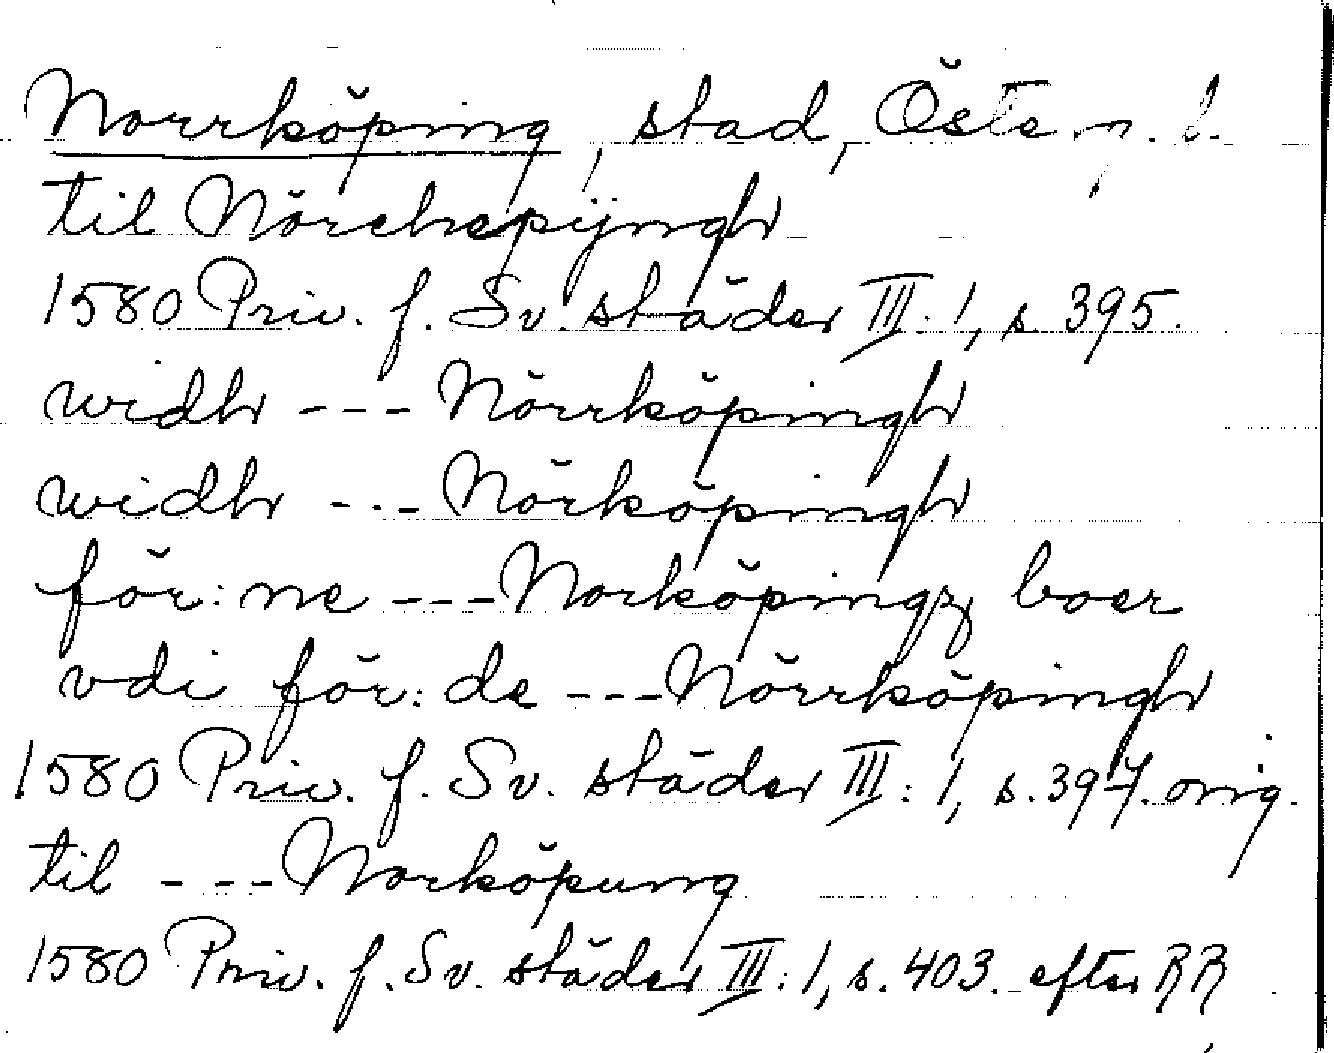 Norrköping, stad, Österg. l.
til Nörchepijngh
1580 Priv. f. Sv. städer III:1, s. 395.
widh --- Nörrköpingh
widh --- Nörköpingh
för:ne --- Norköpingz boer
vdi för:de --- Nörrköpingh
1580 Priv. f. Sv. städer III:1, s. 397. orig.
til --- Norköpung
1580 Priv. f. Sv. städer III:1, s. 403. efter RR